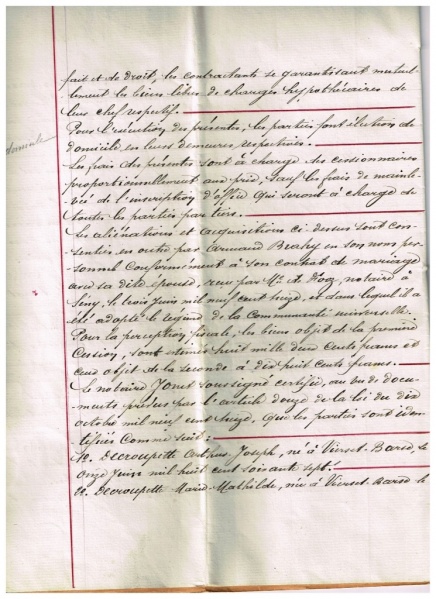 fait et de droit, les contractants se garantissant mutuel-
lement les biens libres de charges hypothécaires de
leur chef respectif.
Pour l'exécution des présentes, les parties font élection de
domicile en leurs demeures respectives.
Les frais des présentes sont à charge des cessionnaires
proportionnellement aux prix, sauf les frais de mainle-
vée de l'inscription d'office qui seront à charge de
toutes les parties par tiers.
Les aliénations et acquisitions ci dessus sont con-
senties en outre par Armand en son nom per-
sonnel conformément à son contrat de mariage
avec sa dite épouse, reçu par Me notaire à
le trois juin mil neuf cent et dans lequel il a
été adopté le régime de la communauté universelle.
Pour la perception fiscale, les biens objet de la première
cession, sont estimés huit mille deux cents francs et
ceux objet de la seconde à dix huit cents francs.
Le notaire soussigné certifie, au vu de docu-
ments prévus par l'article douze de la loi du dix
octobre mil neuf cent treize, que les parties sont iden-
tifiées comme suit:
1°. Decroupette Joseph, né à Vierset-Barse, le
onze juin mil huit cent soixante sept.
2°. Decroupette Marie-Mathilde, née à Vierset-Barse le